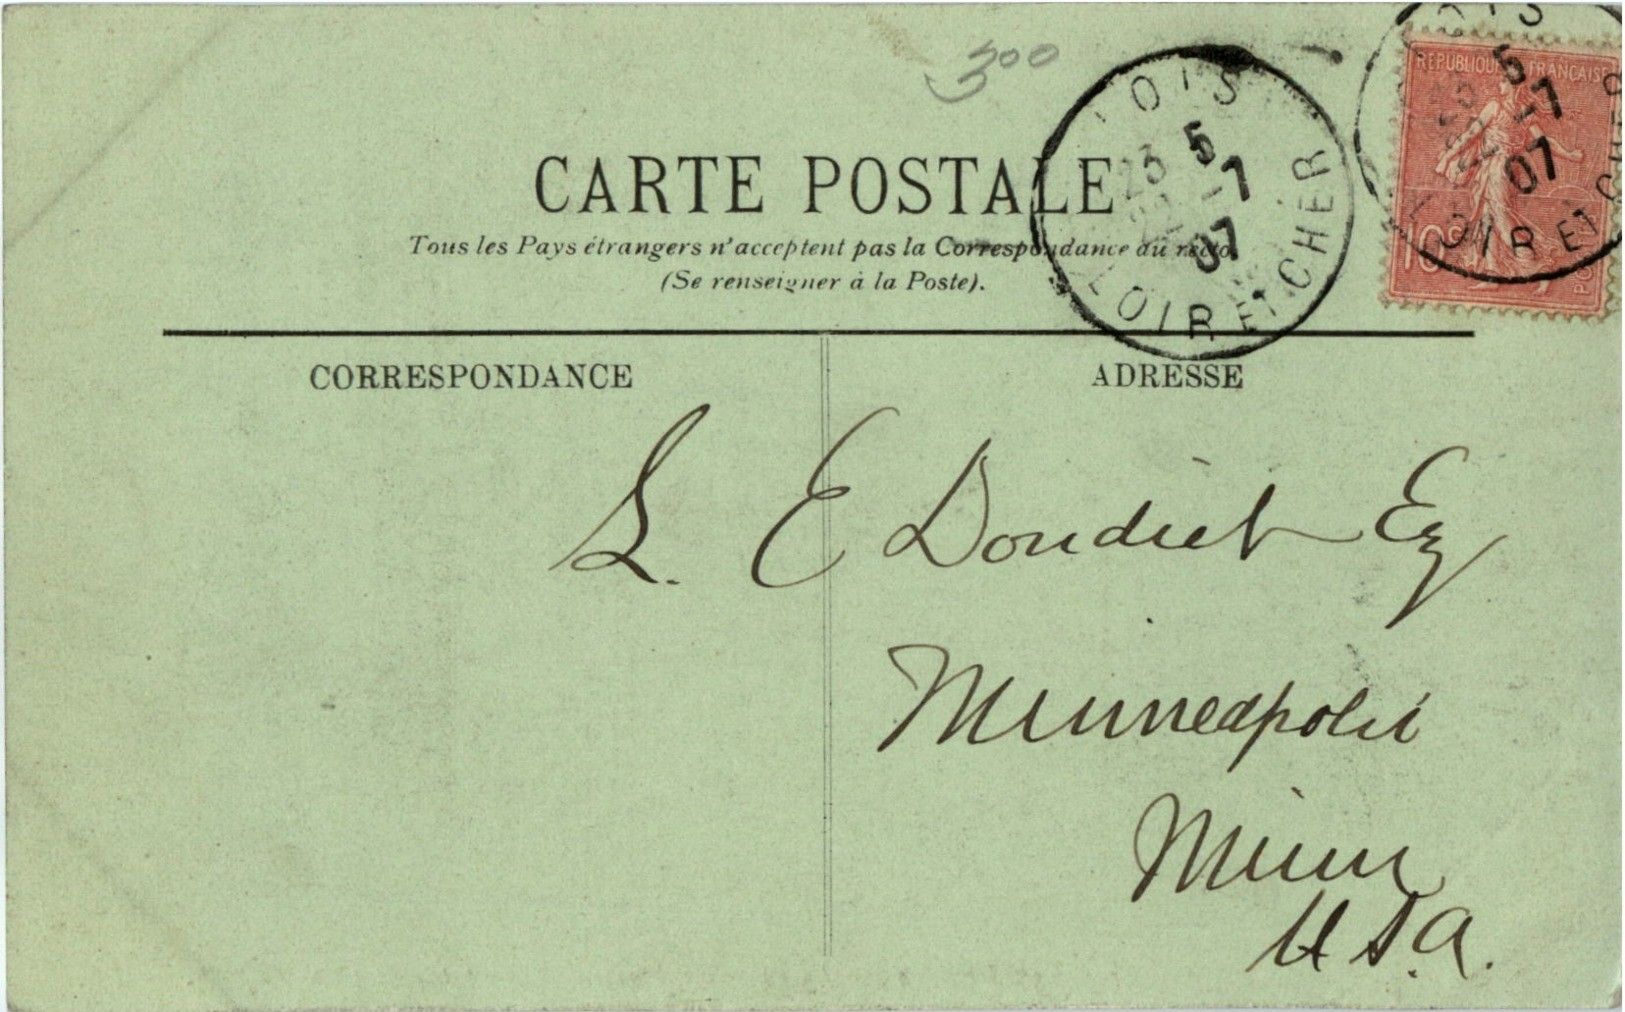 300
CARTE POSTALE
Tous les Pays étrangers n'acceptent pas la Correspondance au recto
(Se renseigner à la Poste).
OIS
5
7
07
LOIR ET CHER
REPUBLIQUE FRANÇAISE
10c
POSTES
OIS
5
7
07
LOIR ET CHER
CORRESPONDANCE
ADRESSE
L. E Doudiet Esq
Minneapolis
Minn
U.S.A.